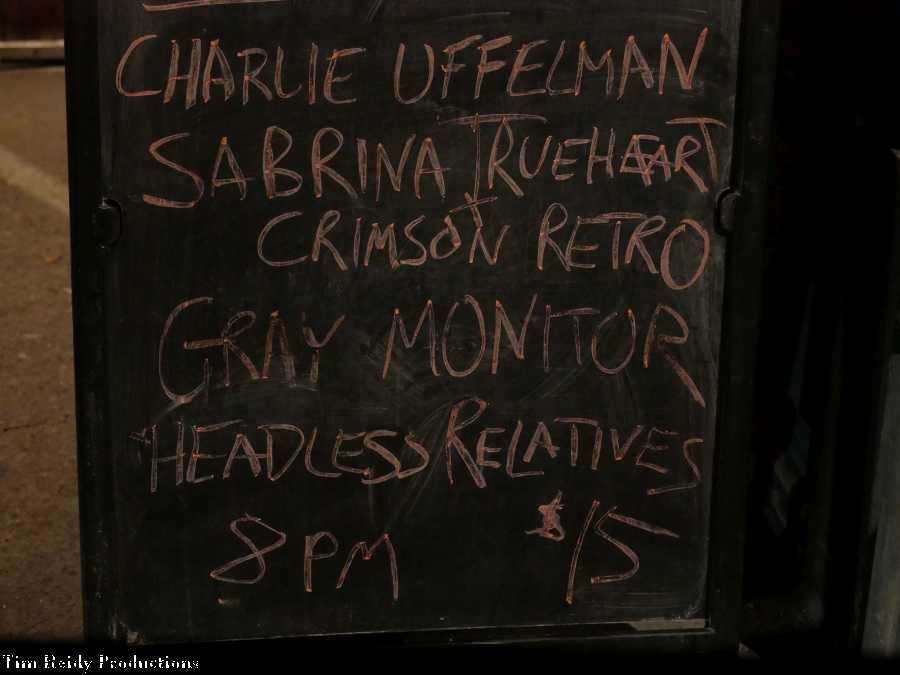 CHARLIE UFFELMAN
SABRINA TRUEHEART
CRIMSON RETRO
GRAY MONITOR
HEADLESS RELATIVES
8 PM $15
Tim Reidy Productions